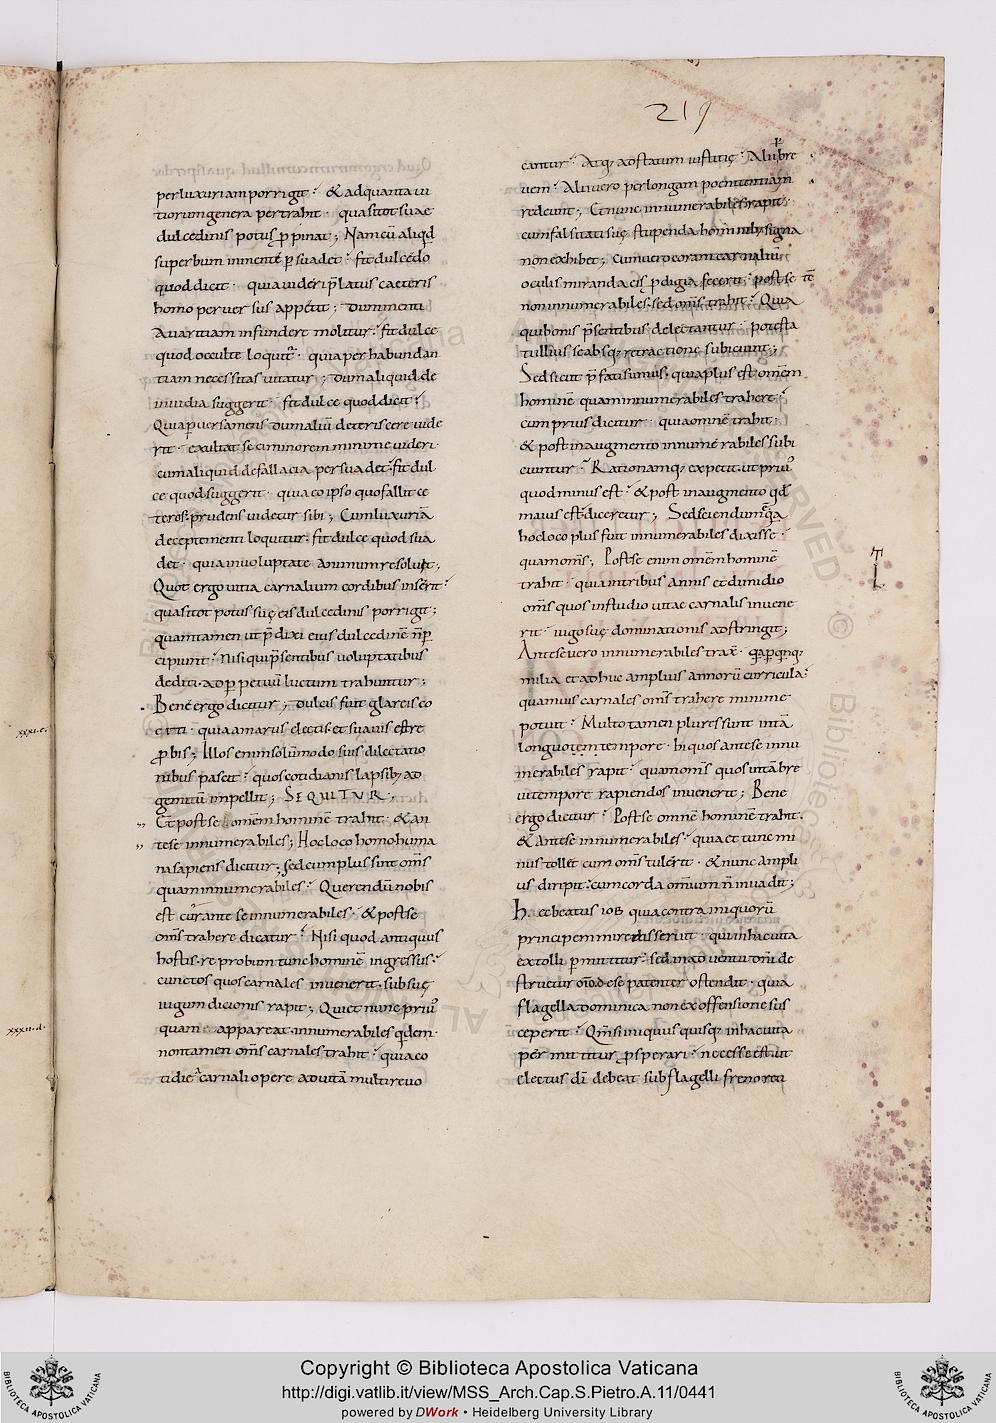 219
per luxuriam porrigit · & ad quanta ui
tiorum genera pertrahit · quasi tot suae
dulcedinis potus ꝓpinat ; Nam cū aliqd
superbum in mente ꝑsuadet · fit dulcedo
quod dicit · quia uideri p̄latus caeteris
homo peruersus appetit ; Dum menti
auaritiam infundere molitur · fit dulce
quod occulte loquit᷑ · quia per habundan
tiam necessitas uitatur ; Dum aliquid de
inuidia suggerit · fit dulce quod dicit ·
Quia ꝑuersa mens dum aliū detteriscere uide
rit · exultat se ei minorem minime uideri ·
cum aliquid de fallacia persuadet · fit dul
ce quod suggerit · quia eo ipso quo fallit ce
teros · prudens uidetur sibi ; Cum luxuriā
deceptę menti loquitur · fit dulce quod sua
det · quia in uoluptate animum resoluit ;
Quot ergo uitia carnalium cordibus inserit ·
quasi tot potus suę eis dulcedinis porrigit ;
quam tamen ut p̄dixi eius dulcedinē n̄ ꝑ
cipiunt · Nisi qui p̄sentibus uoluptatibus
dediti · ad ꝑpetuū luctum trahuntur ;
Bene ergo dicitur ; Dulcis fuit glareis co
citi · quia amarus electis · et suauis est re
ꝓbis ; Illos enim solūmodo suis dilectatio
nibus pascit · quos cotidianis lapsib; ad
gemitū impellit ; SEQUITUR ;
Et post se omēm hominē trahit · & an
te se innumerabiles ; Hoc loco homo huma
na sapiens dicitur ; sed cum plus sint om̄s
quam innumerabiles · Querendū nobis
est cur ante se innumerabiles · & post se
om̄s trahere dicatur · Nisi quod antiquus
hostis · reproborum tunc hominē ingressus ·
cunctos quos carnales inuenerit · sub suę
iugum dicionis rapit ; Qui et nunc priu
quam appareat · innumerabiles qdem ·
non tamen om̄s carnales trahit · quia co
tidie a carnali opere ad uitā multi reuo
xxxi.c.
xxxii.d.
cantur · Atq; ad statum iustitię · Alii bre
uem · Alii uero per longam poenitentiam
redeunt ; Et nunc innumerabiles rapit ·
cum falsitatis suę stupenda hominib; signa
non exhibet ; Cum uero coram carnaliū
oculis miranda eis ꝓdigia fecerit · post se tē
non innumerabiles · sed om̄s trahit · Quia
qui bonis p̄sentibus delectantur · potesta
ti illius se absq; retractione subiciunt ;
Sed sicut p̄fati sumus · quia plus est omēm
hominē quam innumerabiles trahere ·
cum prius dicitur · quia omnē trahit ·
& post in augmento innumerabiles subi
euntur · Ratio namq; expetit ut priu
quod minus est · & post in augmento qd
maius est · diceretur ; Sed sciendum est qa
hoc loco plus fuit innumerabiles dixisse ·
quam om̄s ; Post se enim omēm hominē
trahit · quia in tribus annis et dimidio
om̄s quos in studio uitae carnalis inuene
rit · iugo suę dominationis adstringit ;
Ante se uero innumerabiles trax̄ ·
milia et adhuc amplius annorū curricula ·
quamuis carnales om̄s trahere minime
potuit · Multo tamen plures sunt intā
longuo tempore · hi quos ante se innu
merabiles rapit · quam om̄s quos in tā bre
ui tempore rapiendos inuenerit ; Bene
ergo dicitur · Post se omnē hominē trahit ·
& ante se innumerabiles · quia et tunc mi
nus tollet cum om̄s tulerit · & nunc ampli
us diripit · cum corda omnium n̄ inuadit ;
Haec beatus IOB quia contra iniquorū
principem mire disseruit · qui in hac uita
extolli ꝑmittitur · sed in aduentu dn̄i de
struetur om̄ode patenter ostendit · quia
flagella dominica non ex offensione sus
ceperit · Q̄m si iniquus quisq; in hac uita
permittitur ꝓsperari · necesse est ut
electus dī debeat sub flagelli freno reti
Copyright © Biblioteca Apostolica Vaticana
http://digi.vatlib.it/view/MSS_Arch.Cap.S.Pietro.A.11/0441
powered by DWork • Heidelberg University Library
BIBLIOTECA APOSTOLICA VATICANA
BIBLIOTECA APOSTOLICA VATICANA